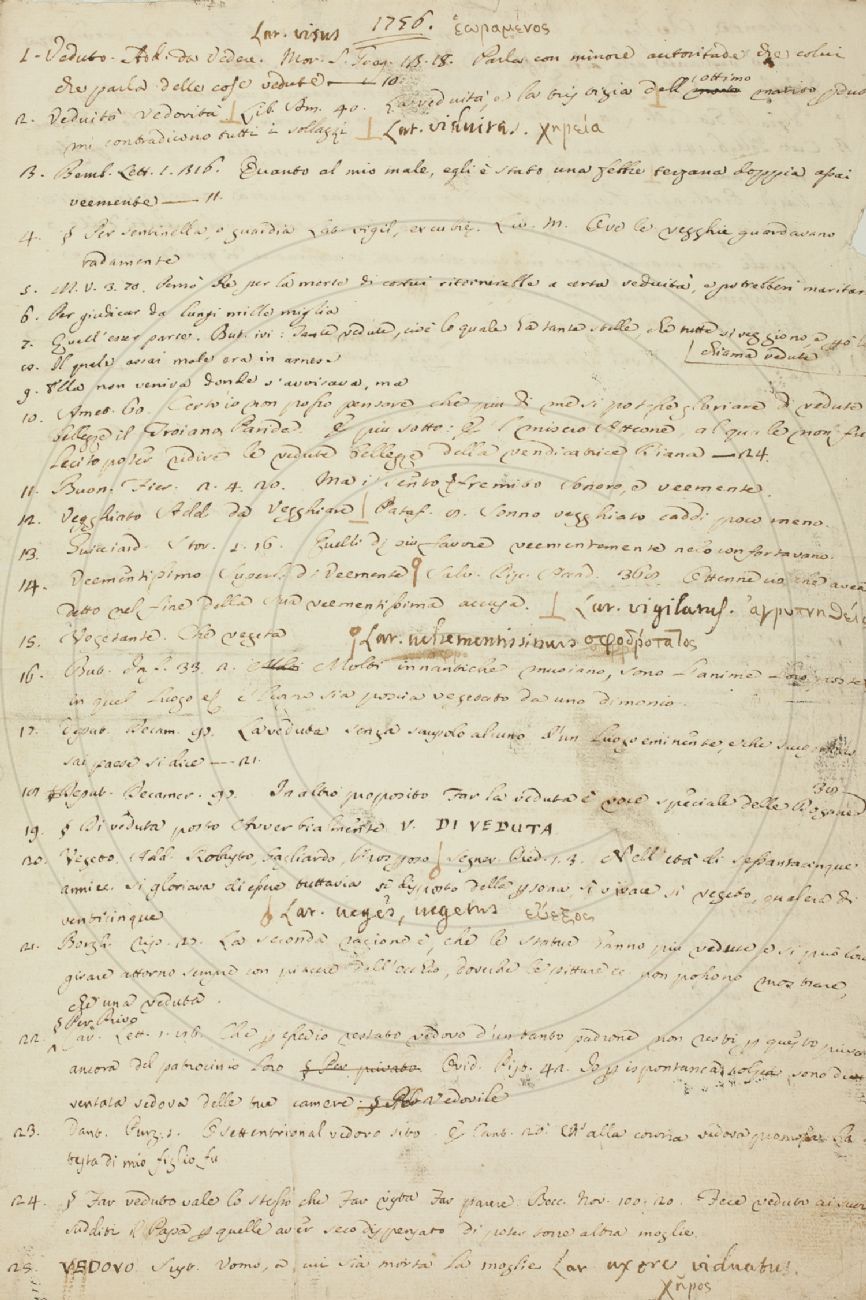 Lat. visus 1756. ἑωραμένος
1. Veduto. Add. da Vedere. Mor. S. Greg. 18. 18. Parla con minore autoritade che colui
che parla delle cose vedute — 10.
2. Veduità Vedovità Lib. Am. 40. La veduità o la tristizia dell' ottimo marito
mi contradicono tutti i sollazzi Lat. viduitas. χηρεία
3. Bemb. Lett. 1. 316. Quanto al mio male, egli è stato una febbre terzana doppia assai
veemente — 11.
4. § Per sentinella, o guardia Lat. vigil, excubiæ. Liv. M. Ove le vegghie guardavano
radamente
5. M. V. 3. 70. Però che per la morte di costui ritornerelle a certa veduità, e potrebbesi maritar
6. Per giudicar da lungi mille miglia
7. Quell' esser parte. But. ivi: Tante vedute, cioè lo quale ha tante stelle, che tutte si veggiono, e
chiama vedute
Il quale assai male era in arnese
9. Ella non veniva donde s'avvisava, ma
10. Amet. 60. Certo io non posso pensare che più di me si potesse gloriare di vedute
bellezze il Troiano Paride. E più sotto: E 'l misero Atteone, al quale non fu
lecito poter ridire le vedute bellezze della vendicatrice Diana — 24.
11. Buon. Fier. 2. 4. 20. Ma i' sento fremito sonoro, e veemente.
12. Vegghiato Add. da Vegghiare Pataf. 9. Sonno vegghiato caddi poco meno.
13. Guicciard. Stor. 1. 16. Quelli di più favore veementemente ne lo confortavano.
14. Veementissimo Superl. di Veemente Salv. Disc. Ottenne ciò, che avea
detto nel fine della sua veementissima accusa. Lat. vigilatus. ἀγρυπνηθείς
15. Vegetante. Che vegeta Lat. vehementissimus σφοδρότατος
16. But. Inf. 33. 2. Molti innantiche muoiano, sono l'anime loro poste
in quel luogo e 'l corpo sia poscia vegetato da uno dimonio.
17. Deput. Decam. 99. La veduta senza scrupolo alcuno d'un luogo eminente, e che scuopre
sai paese si dice — 21.
18. Deput. Decamer. 99. In altro proposito Far la veduta è voce speciale delle Dogane 30.
19. § Di veduta posto Avverbialmente V. DI VEDUTA
20. Vegeto. Add. Robusto, Gagliardo, Vigoroso Segner. Cred. 1. 3. Nell' età di sessantacinque
anni ec. si gloriava di essere tuttavia sì disposto della persona sì vivace sì vegeto, qual era di
venticinque Lat. veges, vegetus εὔεξος
21. Borgh. Rip. 29. La seconda ragione è, che le statue hanno più vedute e si può loro
girare attorno sempre con piacere dell' occhio, dove che le pitture ec. non possono mostrare,
che una veduta.
§ Per Privo
22. Car. Lett. 1. 116. Che per essere io restato vedovo d'un tanto padrone non resti per questo privo
ancora del patrocinio loro § Per privato Ovid. Pist. 42. Io per ispontanea colpa, sono di
ventata vedova delle tue camere. § Per Vedovile
23. Dant. Purg. 1. O settentrional vedovo sito. E Cant. 20. Ch' alla corona vedova promossa la
testa di mio figlio fu
24. § Far veduto vale lo stesso che Far vista Far parere. Bocc. Nov. 100. 20. Fece veduto ai suoi
sudditi il Papa per quelle aver seco dispensato di poter torre altra moglie.
25. VEDOVO. Sust. Uomo, a cui sia morta la moglie Lat. uxore viduatus.
χῆρος